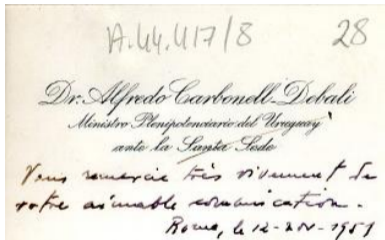 A.44.417/8 28
Dr. Alfredo Carbonell-Debali
Ministro Plenipotenciario del Uruguay
ante la Santa Sede
Vous remercie très vivement de
votre aimable communication.
Rome, le 12-XIV-1951